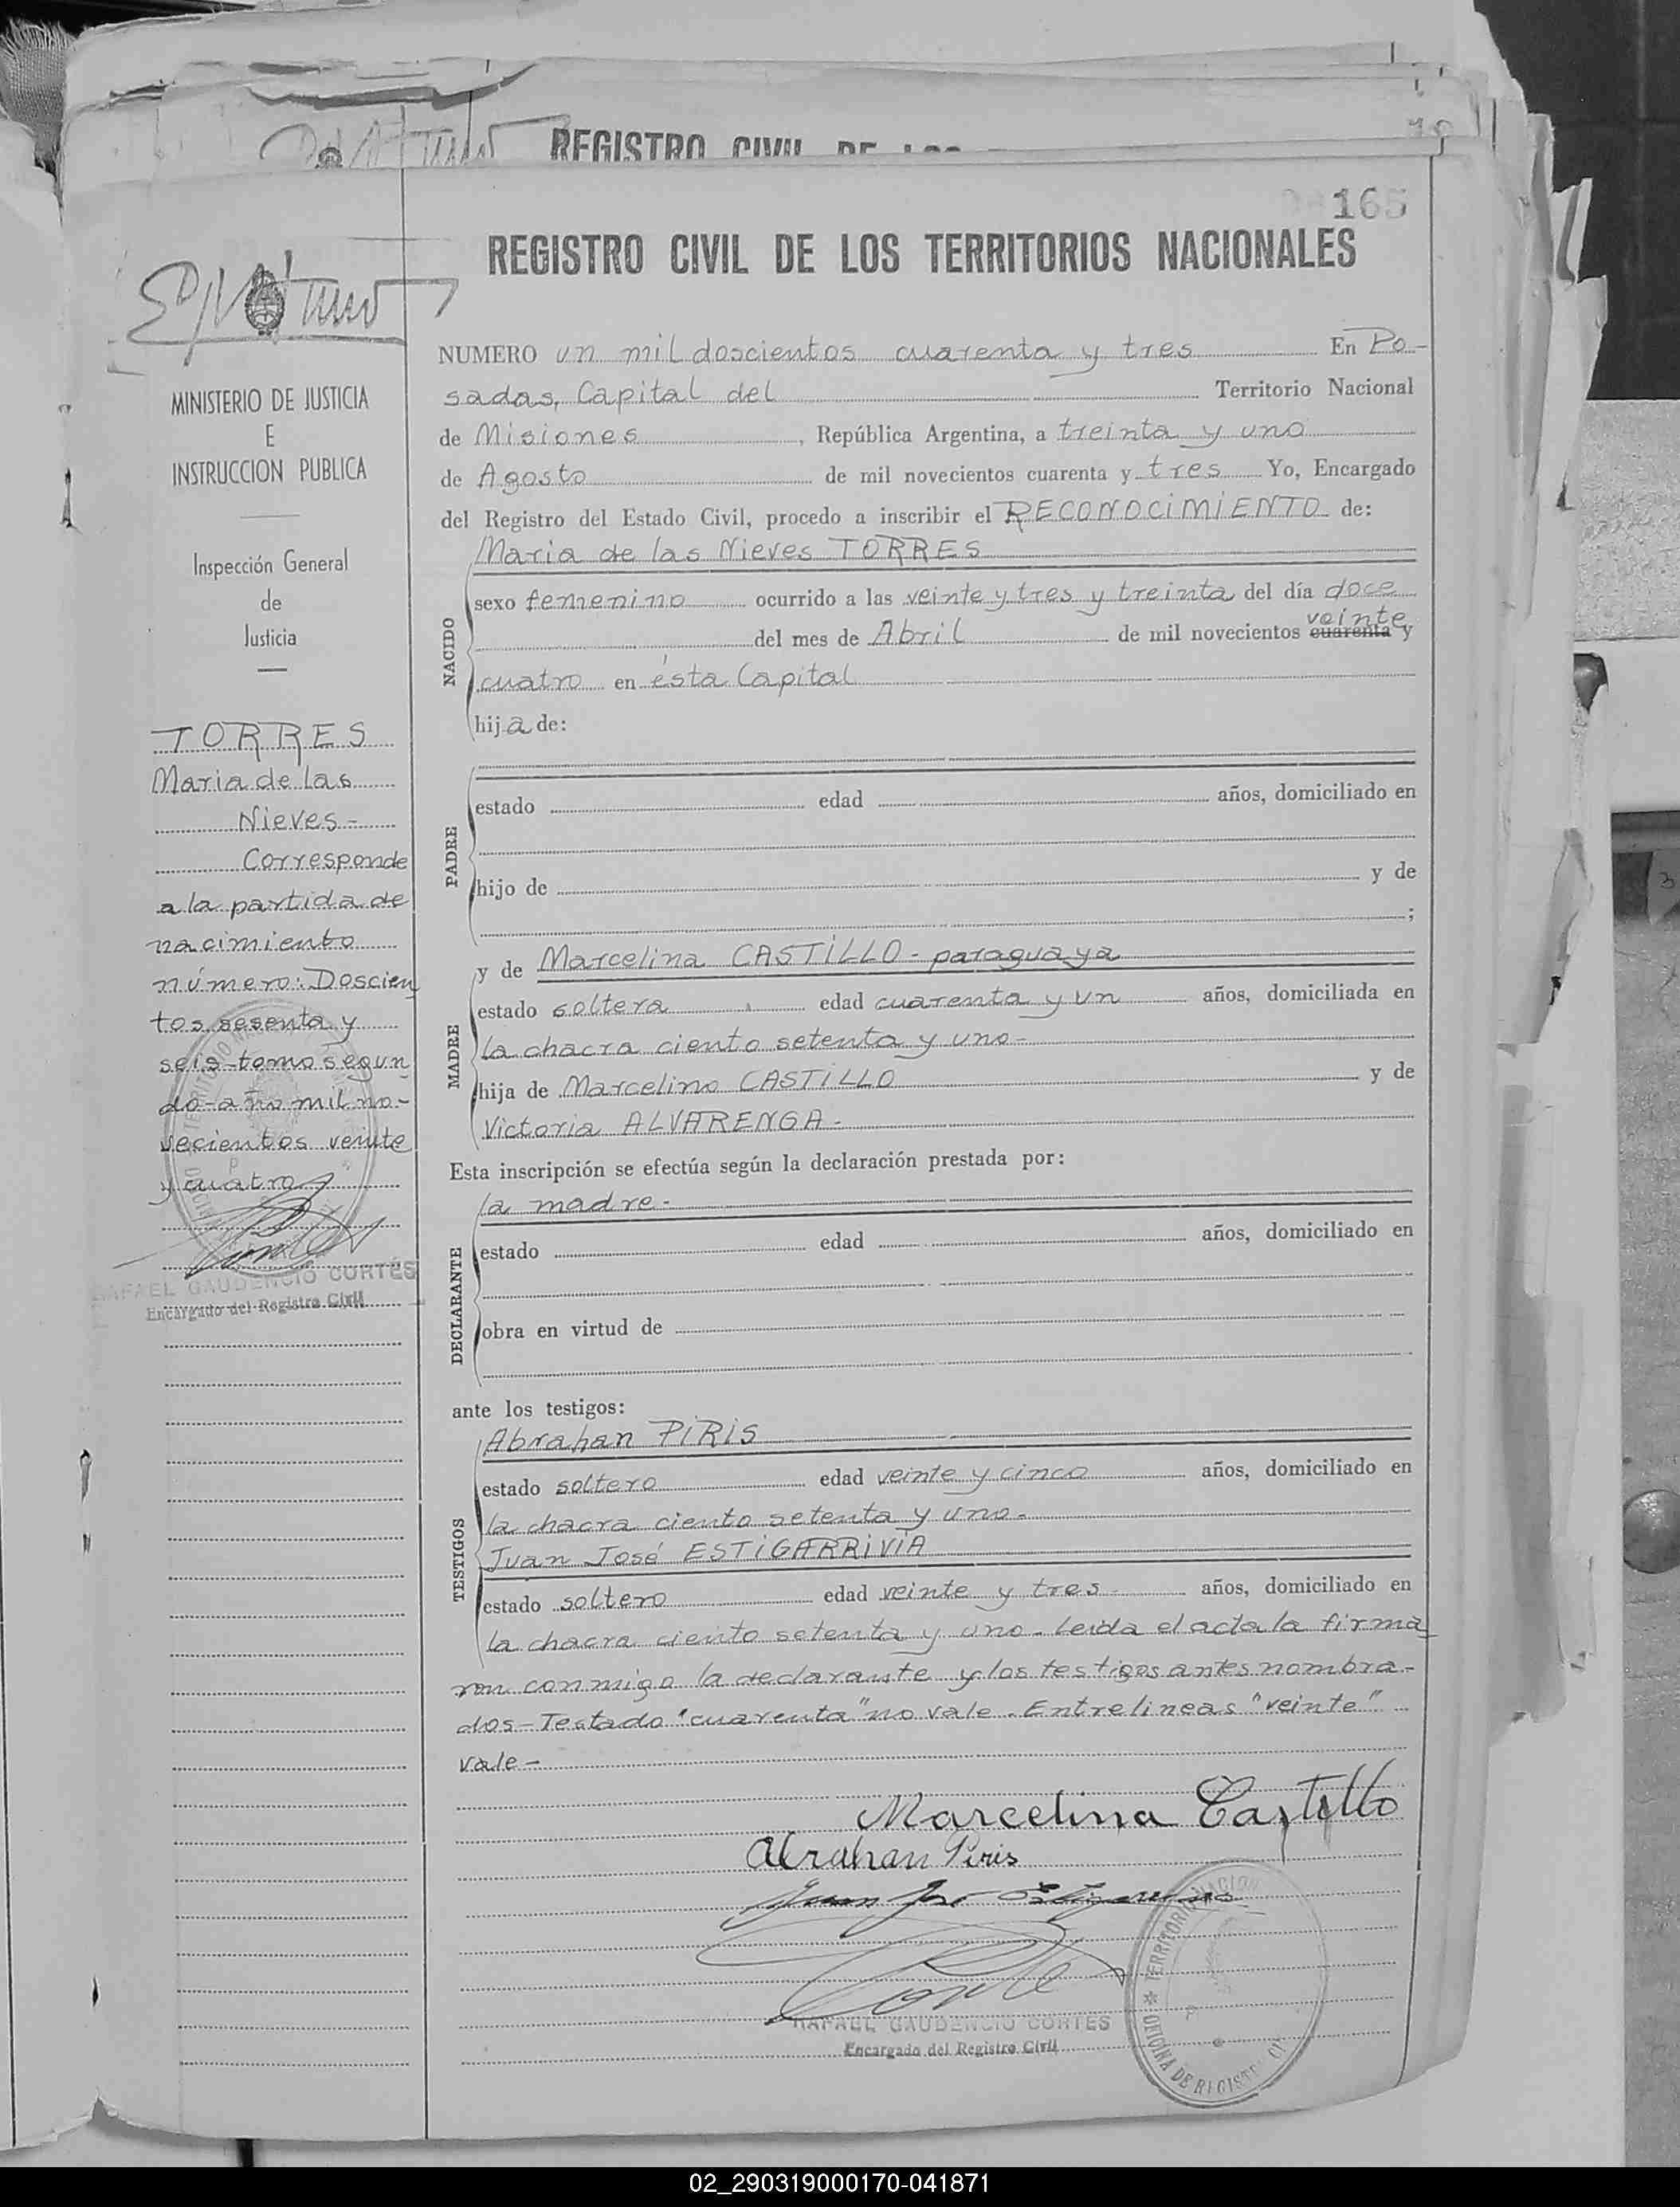 REGISTRO CIVIL DE LOS
165
REGISTRO CIVIL DE LOS TERRITORIOS NACIONALES
MINISTERIO DE JUSTICIA
E
INSTRUCCION PUBLICA
Inspección General
de
Justicia
TORRES
Maria de las
Nieves-
Corresponde
a la partida de
nacimiento
número: Doscien
tos sesenta y
seis-tomo segun
do-año mil no-
vecientos veinte
y cuatro
RAFAEL GAUDENCIO CORTES
Encargado del Registro Civil
NUMERO un mil doscientos cuarenta y tres En Po-
sadas, Capital del Territorio Nacional
de Misiones, República Argentina, a treinta y uno
de Agosto de mil novecientos cuarenta y tres Yo, Encargado
del Registro del Estado Civil, procedo a inscribir el RECONOCIMIENTO de:
NACIDO
Maria de las Nieves TORRES
sexo femenino ocurrido a las veinte y tres y treinta del día doce
veinte
del mes de Abril de mil novecientos cuarenta y
cuatro en ésta Capital
hija de:
PADRE
estado edad años, domiciliado en
hijo de y de
;
MADRE
y de Marcelina CASTILLO - paraguaya
estado soltera edad cuarenta y un años, domiciliada en
la chacra ciento setenta y uno-
hija de Marcelino CASTILLO y de
Victoria ALVARENGA-
Esta inscripción se efectúa según la declaración prestada por:
DECLARANTE
la madre-
estado edad años, domiciliado en
obra en virtud de
ante los testigos:
TESTIGOS
Abrahan PIRIS
estado soltero edad veinte y cinco años, domiciliado en
la chacra ciento setenta y uno-
Juan José ESTIGARRIVIA
estado soltero edad veinte y tres años, domiciliado en
la chacra ciento setenta y uno-Leida el acta la firma
ron conmigo la declarante y los testigos antes nombra-
dos-Testado "cuarenta" no vale. Entrelineas "veinte"
vale-
Marcelina Castillo
Abrahan Piris
RAFAEL GAUDENCIO CORTES
Encargado del Registro Civil
TERRITORIO NACION
OFICINA DE REGIST
02_290319000170-041871